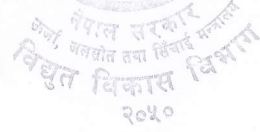 नेपाल सरकार
उर्जा, जलस्रोत तथा सिंचाई मन्त्रालय
विद्युत विकास विभाग
२०५०